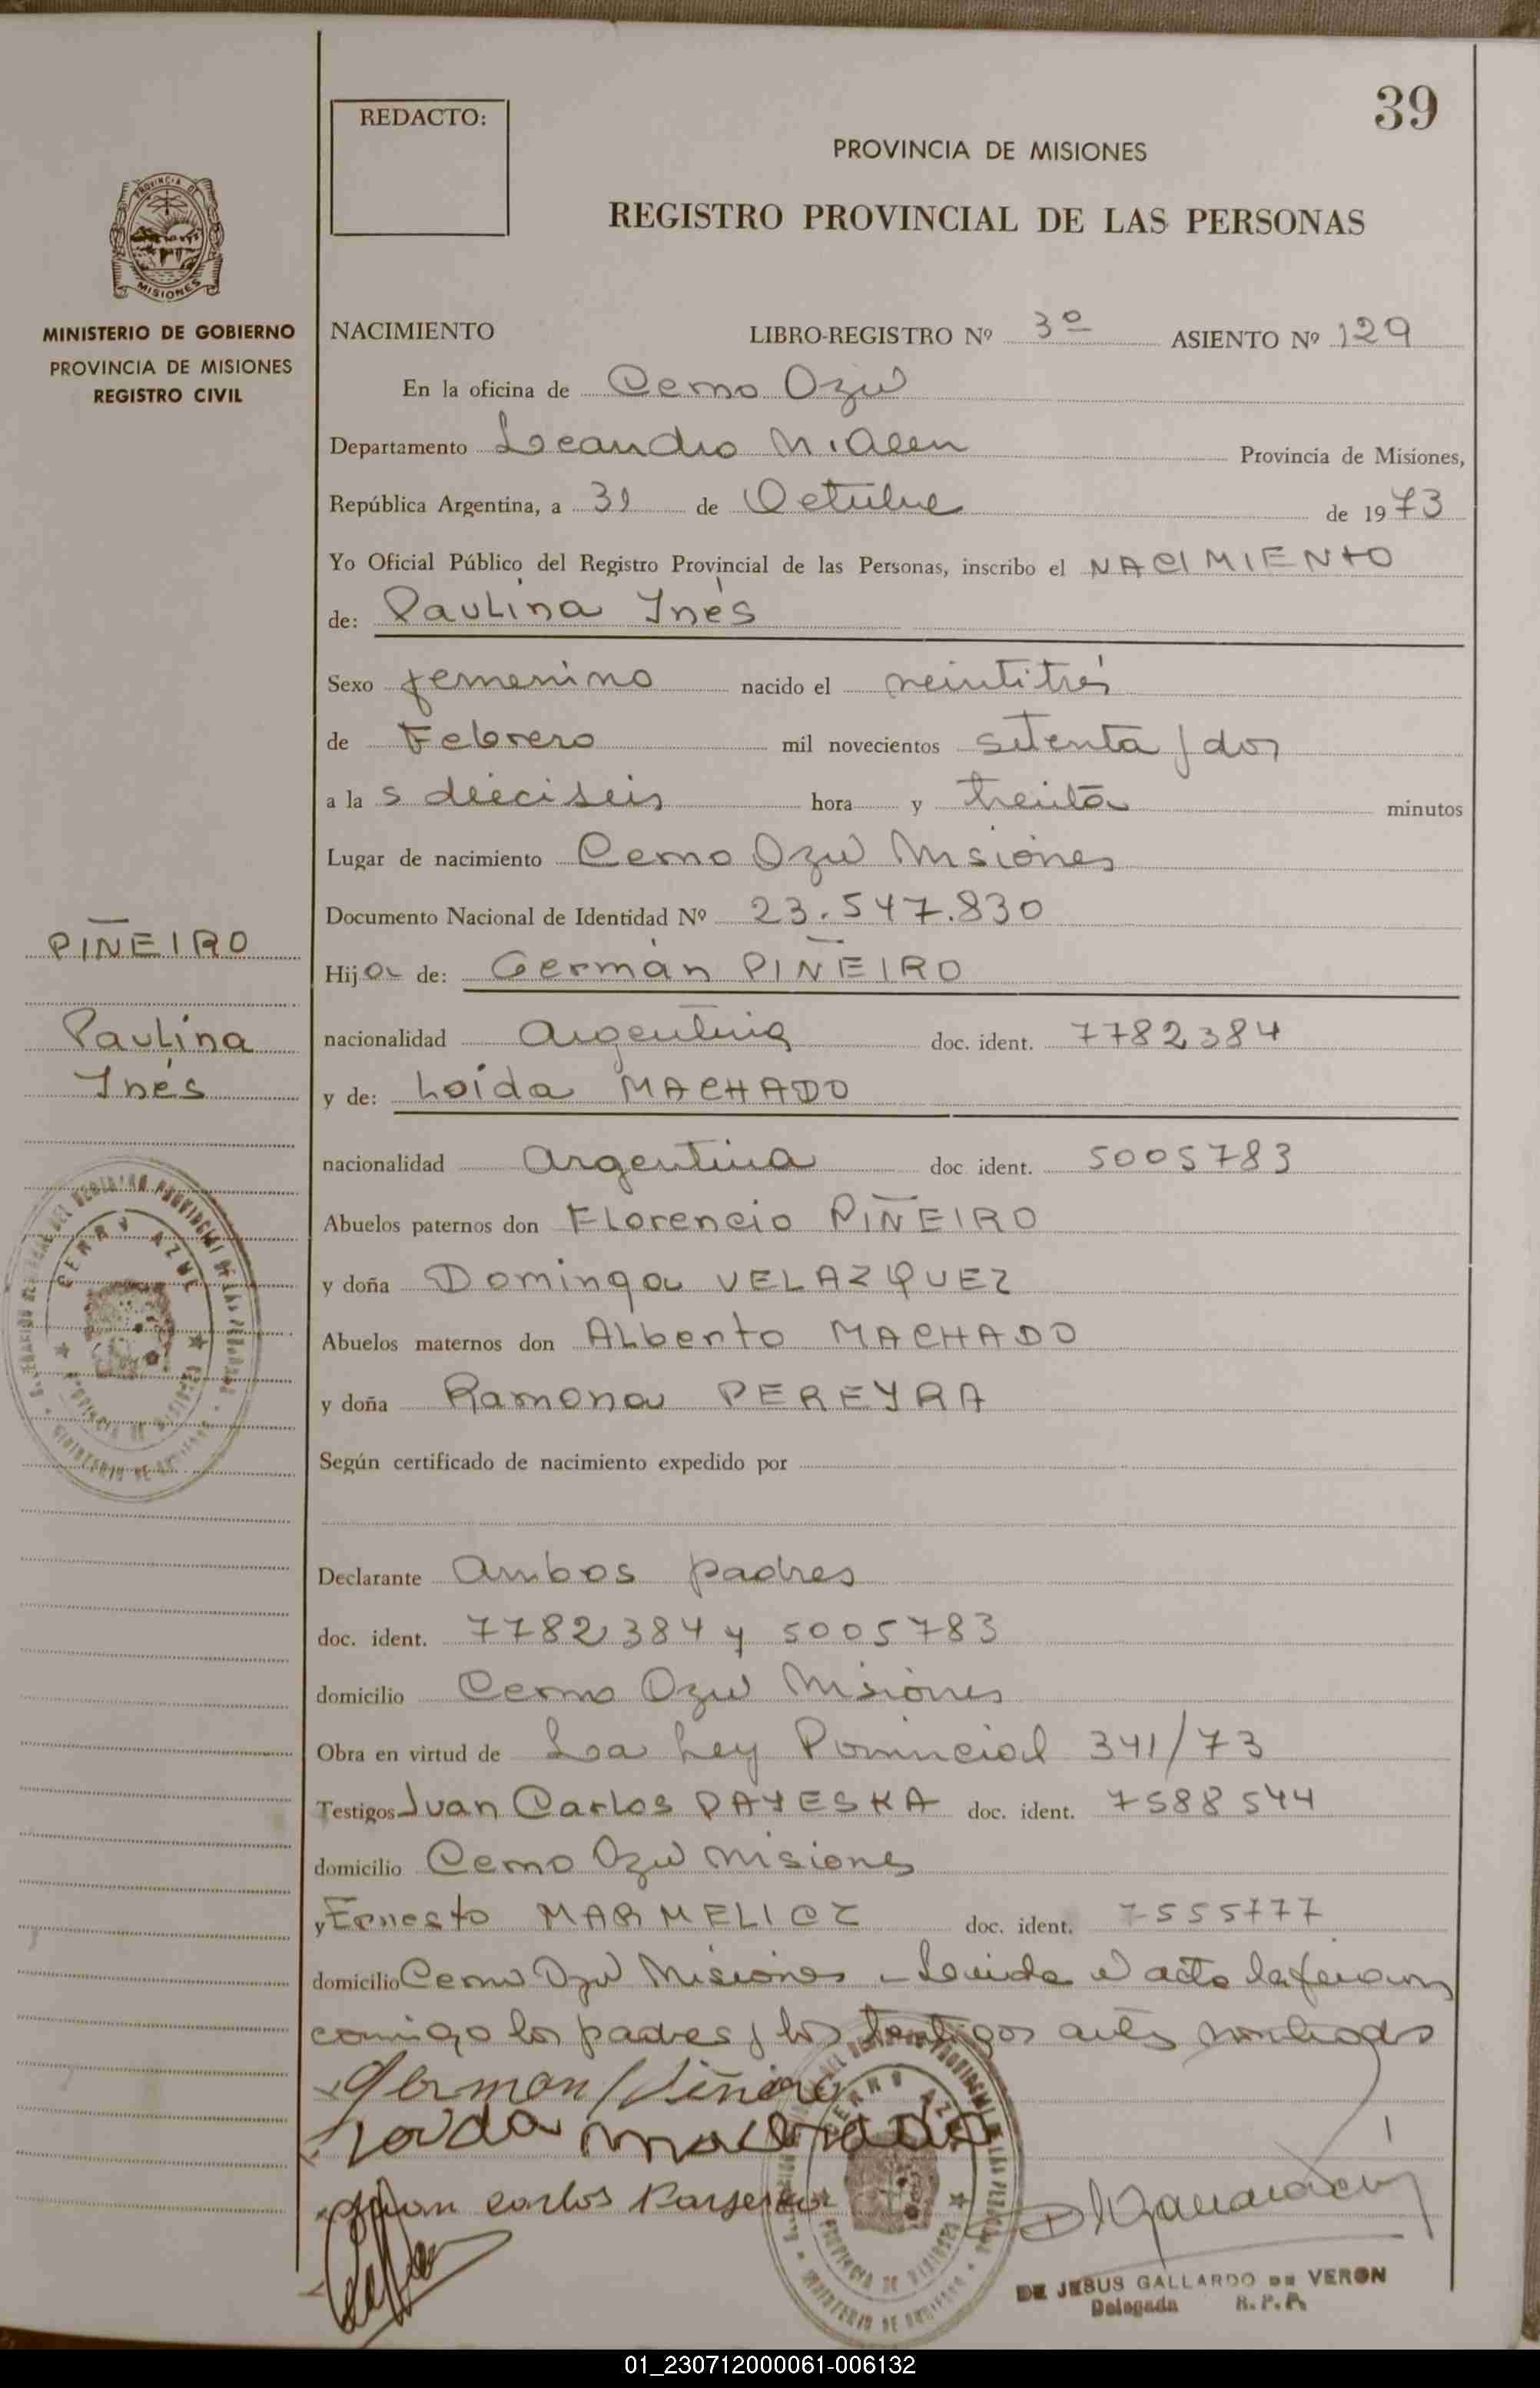 39
REDACTO:
PROVINCIA DE MISIONES
REGISTRO PROVINCIAL DE LAS PERSONAS
PROVINCIA DE
MISIONES
MINISTERIO DE GOBIERNO
PROVINCIA DE MISIONES
REGISTRO CIVIL
NACIMIENTO LIBRO-REGISTRO Nº 3º ASIENTO Nº 129
En la oficina de Cerro Azul
Departamento Leandro N. Alem Provincia de Misiones,
República Argentina, a 31 de Octubre de 1973
Yo Oficial Público del Registro Provincial de las Personas, inscribo el NACIMIENTO
de: Paulina Inés
Sexo femenino nacido el veintitrés
de Febrero mil novecientos setenta y dos
a las dieciseis hora y treinta minutos
Lugar de nacimiento Cerro Azul Misiones
Documento Nacional de Identidad Nº 23.547.830
PIÑEIRO
Paulina
Inés
Hija de: Germán PIÑEIRO
nacionalidad Argentina doc. ident. 7782384
y de: Loida MACHADO
nacionalidad Argentina doc ident. 5005783
Abuelos paternos don Florencio PIÑEIRO
y doña Dominga VELAZQUEZ
Abuelos maternos don Alberto MACHADO
y doña Ramona PEREYRA
CERRO AZUL
Según certificado de nacimiento expedido por
Declarante Ambos padres
doc. ident. 7782384 y 5005783
domicilio Cerro Azul Misiones
Obra en virtud de La Ley Provincial 341/73
Testigos Juan Carlos PAYESKA doc. ident. 7588544
domicilio Cerro Azul Misiones
y Ernesto MARMELICZ doc. ident. 7555777
domicilio Cerro Azul Misiones - Leida el acta la firman
conmigo los padres y los testigos antes nombrados
German Piñeiro
Loida Machado
Juan Carlos
CERRO AZUL
DE JESUS GALLARDO DE VERON
Delegada R.P.P.
01_230712000061-006132